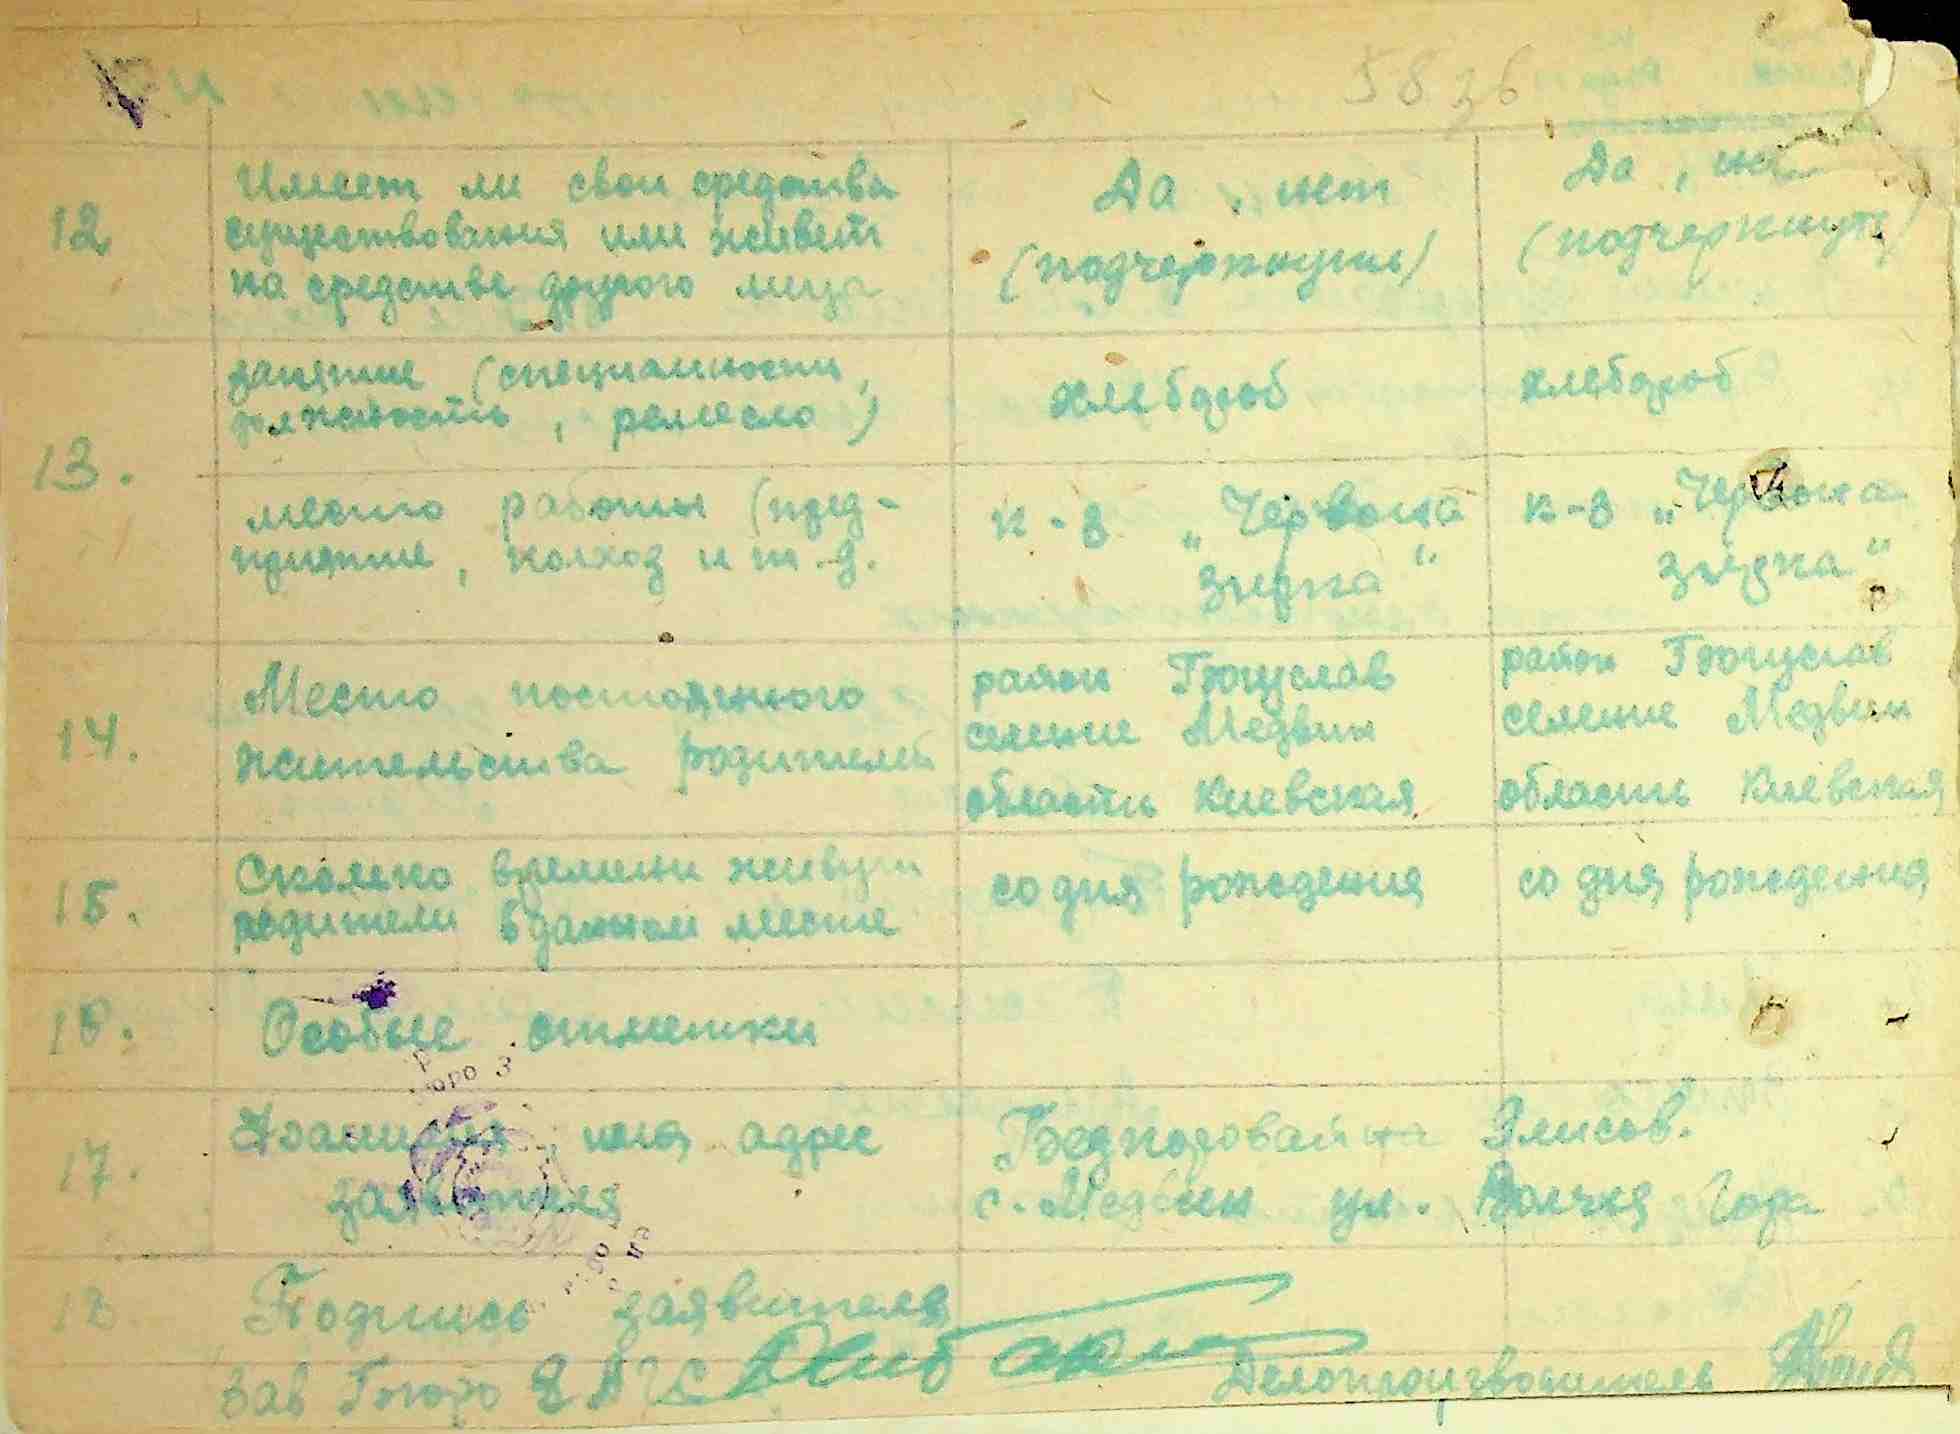 5836
12
Имеет ли свои средства
существования или живет
на средстве другого лица
Да , нет
(подчеркнути)
Да , нет
(подчеркнуть)
13.
занятие (специальности,
должность, ремесло)
хлебороб
хлебороб
место работы (пред-
приятие, колхоз и т.д.
к-з „Червона
зирка“
к-з „Червона
зирка“
14.
Место постоянного
жительства родителей
район Богуслав
селение Медвин
область Киевская
район Богуслав
селение Медвин
область Киевская
15.
Сколько времени живут
родители в данном месте
со дня рождения
со дня рождения
16.
Особые отметки
17.
Фамилия, имя, адрес
заявителя
Бедноровайна Элисов.
с. Медвин ул. Волчья Гора
18.
Подпись заявителя
Зав Бюро ЗАГС
Делопроизводитель